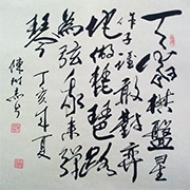 天棋盤星
作子誰敢對弈
地做琵琶路
為弦來彈
琴 丁亥年夏
陳樹